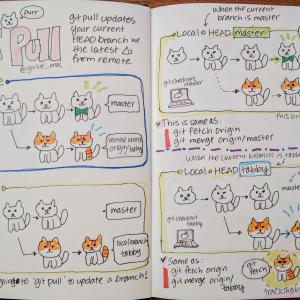 purr
Pull
git pull updates
your current
HEAD branch w/
the latest Δs
from remote
master
remote branch
origin/tabby
master
local branch
tabby
going to 'git pull' to update a branch!
when the current
branch is master
Local → HEAD master
git checkout
master
This is same as:
git fetch origin
git merge origin/master
when the current branch is tabby
Local → HEAD tabby
git checkout
tabby
Same as:
git fetch origin
git merge origin/
tabby
git
fetch!